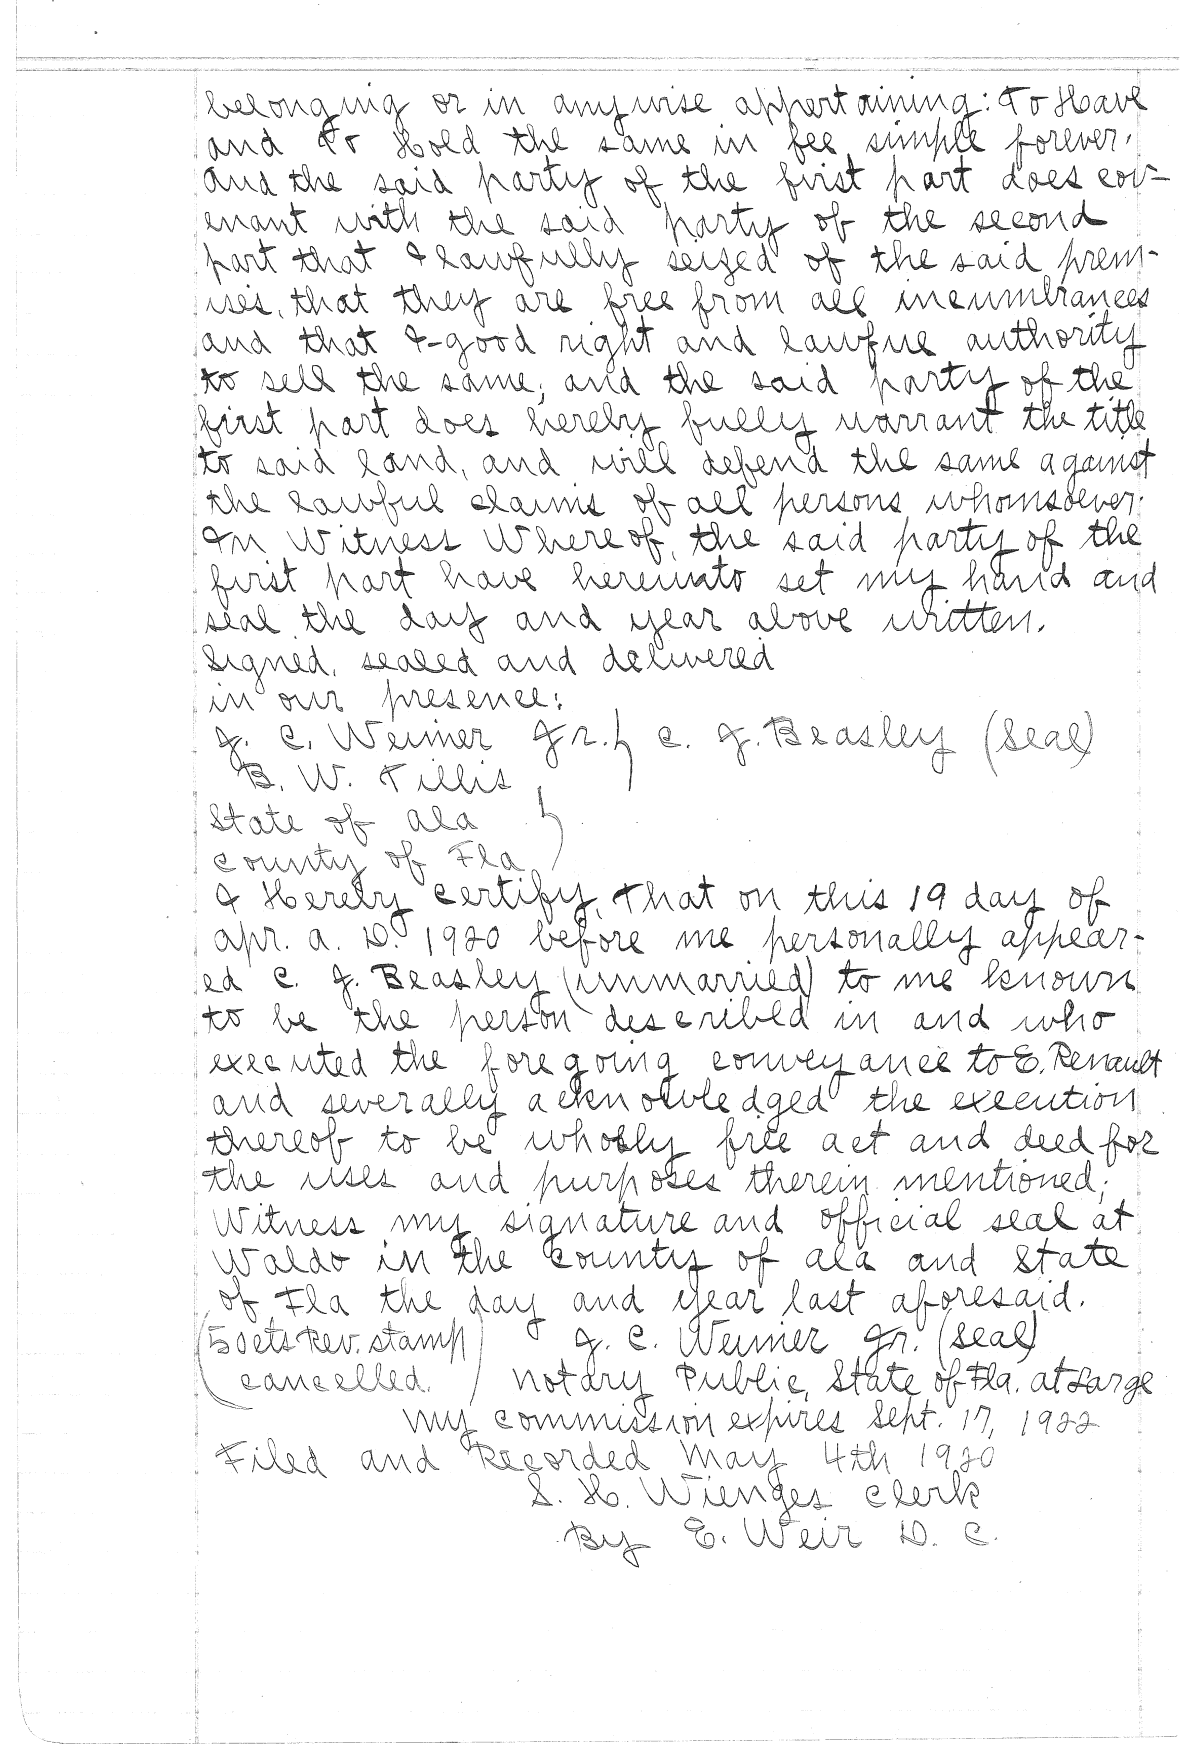 belonging or in anywise appertaining: To Have
and To Hold the same in fee simple forever.
And the said party of the first part does cov-
enant with the said party of the second
part that I lawfully seized of the said prem-
ises, that they are free from all incumbrances
and that I-good right and lawful authority
to sell the same; and the said party of the
first part does hereby fully warrant the title
to said land, and will defend the same against
the lawful claims of all persons whomsoever.
In Witness Whereof, the said party of the
first part have hereunto set my hand and
seal the day and year above written.
Signed, sealed and delivered
in our presence:
J. C. Weimer Jr. } C. J. Beasley (Seal)
B. W. Tillis
State of Ala }
County of Fla
I Hereby certify, That on this 19 day of
Apr. A. D. 1920 before me personally appear-
ed C. J. Beasley (unmarried) to me known
to be the person described in and who
executed the foregoing conveyance to E. Renault
and severally acknowledged the execution
thereof to be wholly free act and deed for
the uses and purposes therein mentioned;
Witness my signature and official seal at
Waldo in the County of Ala and State
of Fla the day and year last aforesaid.
(50cts Rev. stamp) J. C. Weimer Jr. (Seal)
(cancelled.) Notary Public, State of Fla. at Large
My commission expires Sept. 17, 1922
Filed and Recorded May 4th 1920
S. H. Wienges Clerk
By E. Weir D. C.